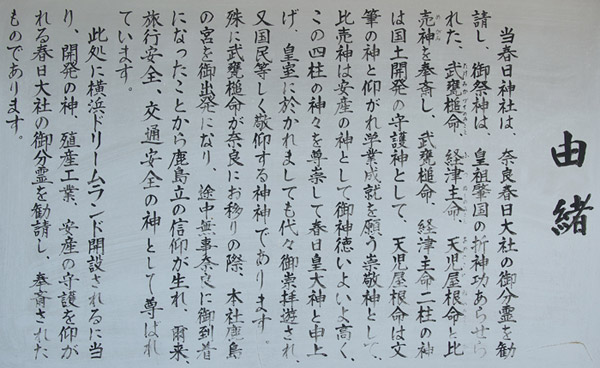 由緒
当春日神社は、奈良春日大社の御分霊を勧
請し、御祭神は、皇祖肇国の折神功あらせら
れた、武甕槌命、経津主命、天児屋根命と比
売神を奉斎し、武甕槌命、経津主命二柱の神
は国土開発の守護神として、天児屋根命は文
筆の神と仰がれ学業成就を願う崇敬神として、
比売神は安産の神として御神徳いよいよ高く、
この四柱の神々を尊崇して春日皇大神と申上
げ、皇室に於かれましても代々御崇拝遊され、
又国民等しく敬仰する神神であります。
殊に武甕槌命が奈良にお移りの際、本社鹿島
の宮を御出発になり、途中無事奈良に御到着
になったことから鹿島立の信仰が生れ、爾来、
旅行安全、交通安全の神として尊ばれ
ています。
此処に横浜ドリームランド開設されるに当
り、開発の神、殖産工業、安産の守護を仰が
れる春日大社の御分霊を勧請し、奉斎された
ものであります。